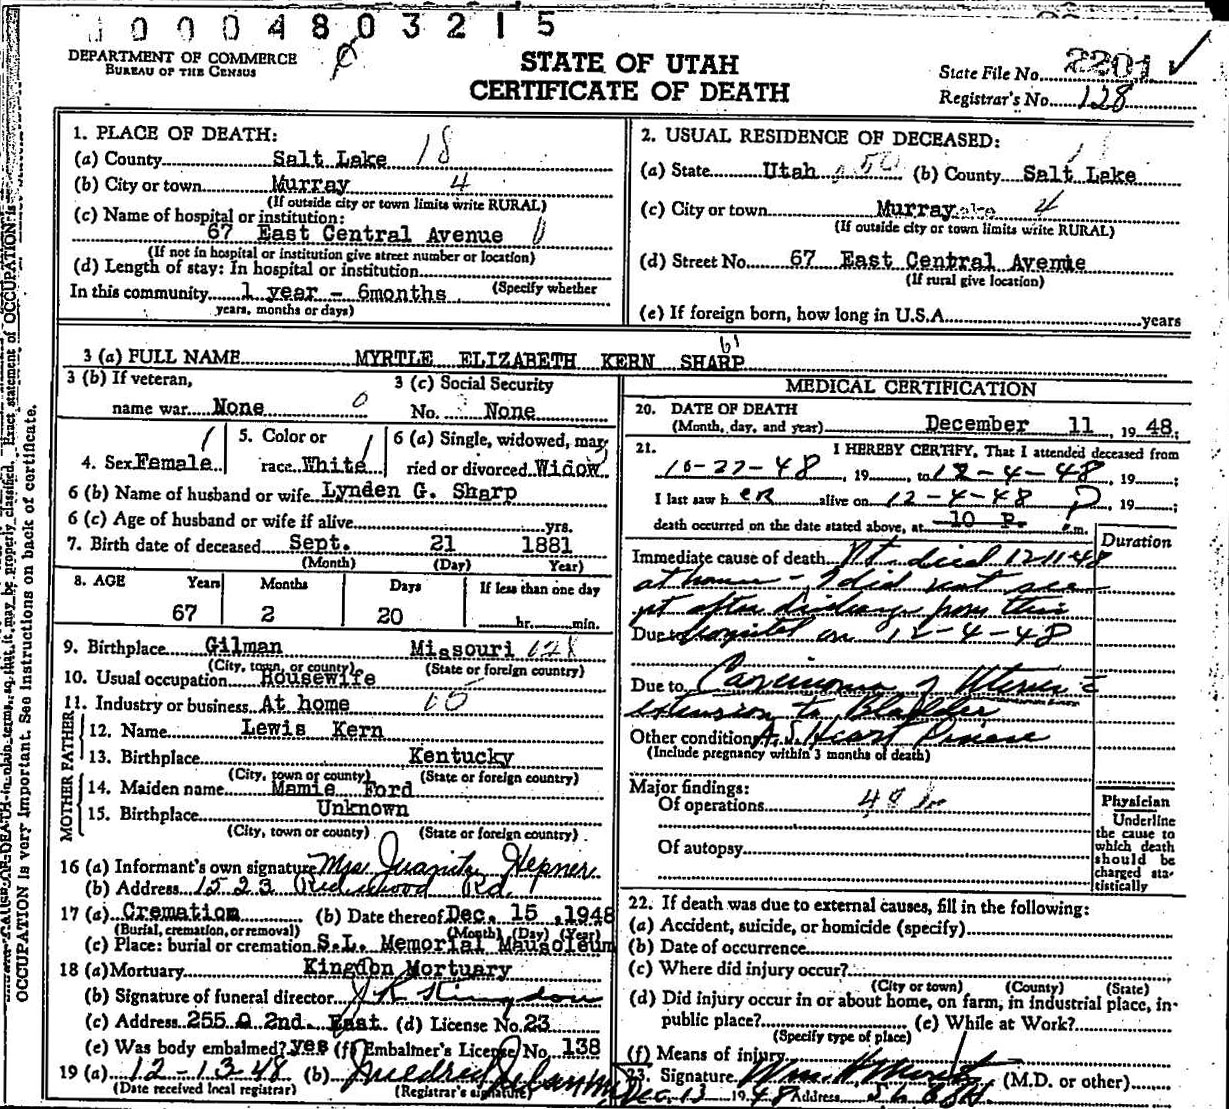 0 0 0 4 8 0 3 2 1 5
DEPARTMENT OF COMMERCE
BUREAU OF THE CENSUS
STATE OF UTAH
CERTIFICATE OF DEATH
State File No. 2201 ✓
Registrar's No. 128
1. PLACE OF DEATH:
(a) County Salt Lake 18
(b) City or town Murray 4
(If outside city or town limits write RURAL)
(c) Name of hospital or institution:
67 East Central Avenue
(If not in hospital or institution give street number or location)
(d) Length of stay: In hospital or institution
(Specify whether
In this community 1 year - 6months
years, months or days)
2. USUAL RESIDENCE OF DECEASED:
(a) State Utah (b) County Salt Lake
(c) City or town Murray 4
(If outside city or town limits write RURAL)
(d) Street No. 67 East Central Avenue
(If rural give location)
(e) If foreign born, how long in U.S.A. years
3 (a) FULL NAME MYRTLE ELIZABETH KERN SHARP
61
3 (b) If veteran,
name war None 0
3 (c) Social Security
No. None
4. Sex Female 1
5. Color or
race White 1
6 (a) Single, widowed, mar
ried or divorced Widow
6 (b) Name of husband or wife Lynden G. Sharp
6 (c) Age of husband or wife if alive yrs.
7. Birth date of deceased Sept. 21 1881
(Month) (Day) Year)
8. AGE Years Months Days If less than one day
67 2 20 hr. min.
9. Birthplace Gilman Missouri 128
(City, town, or county) (State or foreign country)
10. Usual occupation Housewife
11. Industry or business At home
FATHER
12. Name Lewis Kern
13. Birthplace Kentucky
(City, town or county) (State or foreign country)
MOTHER
14. Maiden name Mamie Ford
15. Birthplace Unknown
(City, town or county) (State or foreign country)
16 (a) Informant's own signature Mrs Juanita Hepner
(b) Address 1523 Redwood Rd.
17 (a) Cremation (b) Date thereof Dec. 15, 1948
(Burial, cremation, or removal) (Month) (Day) (Year)
(c) Place: burial or cremation S.L. Memorial Mausoleum
18 (a) Mortuary Kingdon Mortuary
(b) Signature of funeral director J R Kingdon
(c) Address 255 2nd. East (d) License No. 23
(e) Was body embalmed? yes (f) Embalmer's License No. 138
19 (a) 12-13-48 (b) Mildred
(Date received local registrar) (Registrar's signature)
MEDICAL CERTIFICATION
20. DATE OF DEATH
(Month, day, and year) December 11, 1948;
21. I HEREBY CERTIFY, That I attended deceased from
10-27-48, 19, to 12-4-48, 19;
I last saw h er alive on 12-4-48, 19;
death occurred on the date stated above, at 10 P. m.
Duration
Immediate cause of death Pt. died 12-11-48
at home - I did not see
pt after discharge from this
Due to hospital on 12-4-48
Due to Carcinoma of Uterus c̄
extension to Bladder
Other conditions A.S. Heart Disease
(Include pregnancy within 3 months of death)
Major findings:
Of operations
Of autopsy
Physician
Underline
the cause to
which death
should be
charged sta-
tistically
22. If death was due to external causes, fill in the following:
(a) Accident, suicide, or homicide (specify)
(b) Date of occurrence
(c) Where did injury occur?
(City or town) (County) (State)
(d) Did injury occur in or about home, on farm, in industrial place, in-
public place? (e) While at Work?
(Specify type of place)
(f) Means of injury
23. Signature Wm. H (M.D. or other)
Dec. 13 1948 Address
OCCUPATION is very important. See instructions on back of certificate.
CAUSE OF DEATH in plain terms, so that it may be properly classified. Exact statement of OCCUPATION is